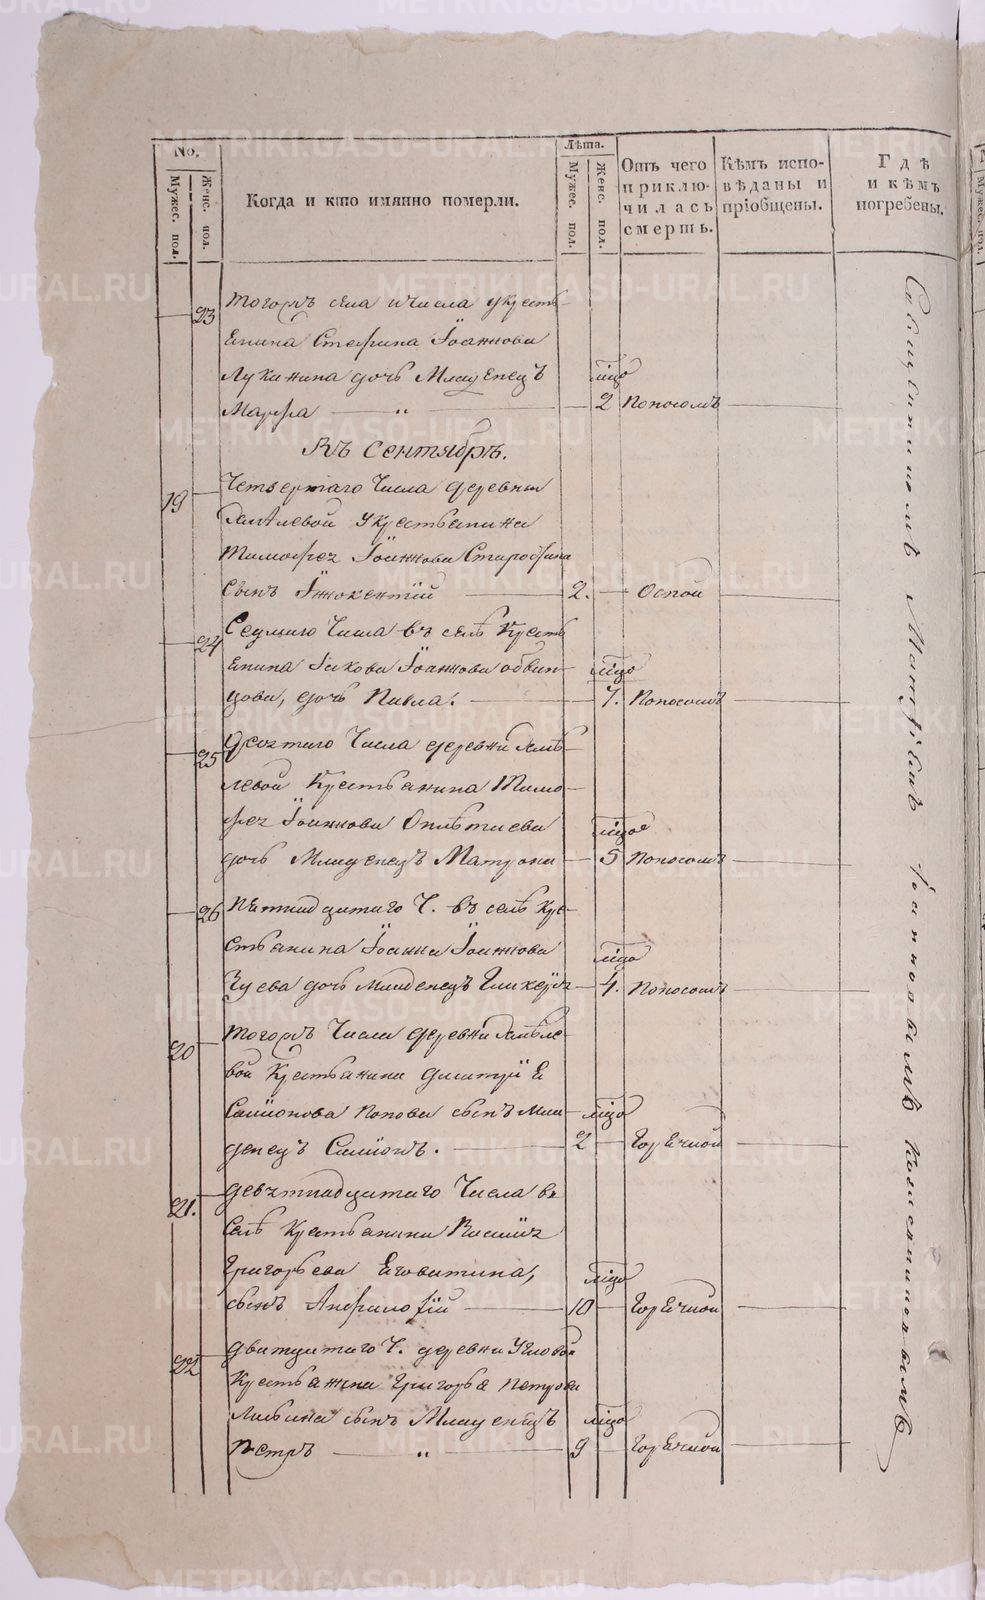 METRIKI.GASO-URAL.RU
No.
Мужес. пол.
Женс. пол.
Когда и кто имянно померли.
Лѣта.
Мужес. пол.
Женс. пол.
Отъ чего приклю-чилась смерть.
Кѣмъ испо-вѣданы и пріобщены.
Гдѣ и кѣмъ погребены.
23 Тогожъ села и числа у крестъ-
янина Стефана Іоаннова
Лукинина дочь Младенецъ
Марфа — „ — 2 Поносомъ
Въ Сентябрѣ.
19 Четвертаго Числа деревни
левой у крестьянина
Тимофея Іоаннова
сынъ Іннокентій — 2. — Оспой
24 Седмаго Числа въ селѣ Кресть
янина Іакова Іоаннова обвин-
цова, дочь Павла. — 7. Поносомъ
25 Числа деревни
левой Крестьянина Тимо-
фея Іоаннова
дочь Младенецъ Матрона — 5 Поносомъ
26 Пятнадцатаго Ч. въ селѣ Кре-
стьянина Іоанна Іоаннова
Зуева дочь младенецъ Гликерія — 4. Поносомъ
20 Тогожъ Числа деревни
вой Крестьянина Димитрія
Симіонова Попова сынъ Мла-
денецъ Симіонъ. — 2 — Горячкой
21. Девятнадцатаго Числа въ
Селѣ Крестьянина Василія
Григорьева
сынъ Амфилофій — 10 — Горячкой
22 Дватцатаго Ч. деревни Угловой
Крестьянина Григорья Петрова
сынъ Младенецъ
Петръ — „ — 9 — Горячкой
Священникомъ Матфіемъ Іанновымъ